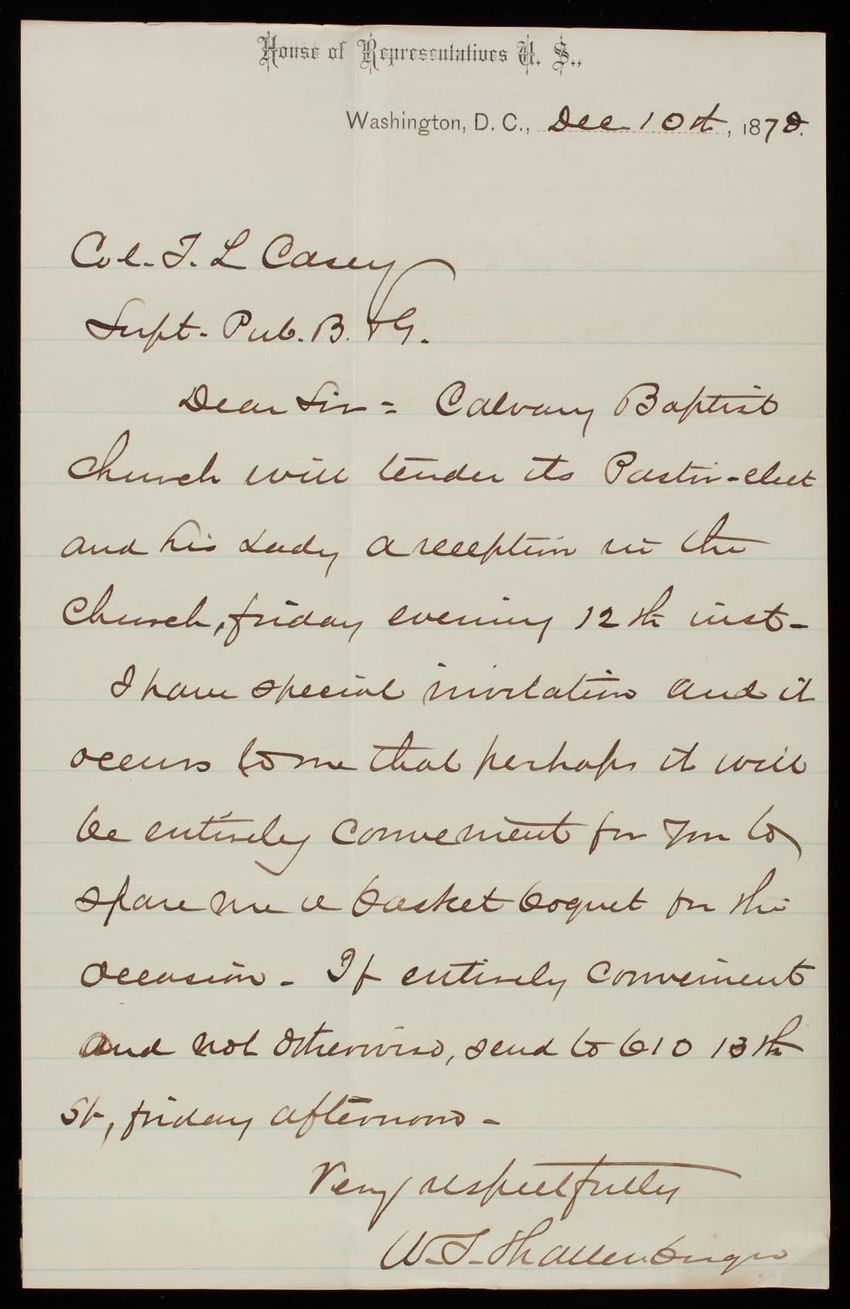 House of Representatives U. S.,
Washington, D. C., Dec 10th, 1878.
Col. T. L Casey
Supt. Pub. B. & G.
Dear Sir = Calvary Baptist
church will tender its Pastor-elect
and his Lady a reception in the
church, friday evening 12th inst-
I have special invitation and it
occurs to me that perhaps it will
be entirely convenient for you to
spare me a basket boquet for the
occasion - If entirely convenient
and not otherwise, send to 610 13th
St, friday afternoon -
Very respectfully
W. S. Shallenberger